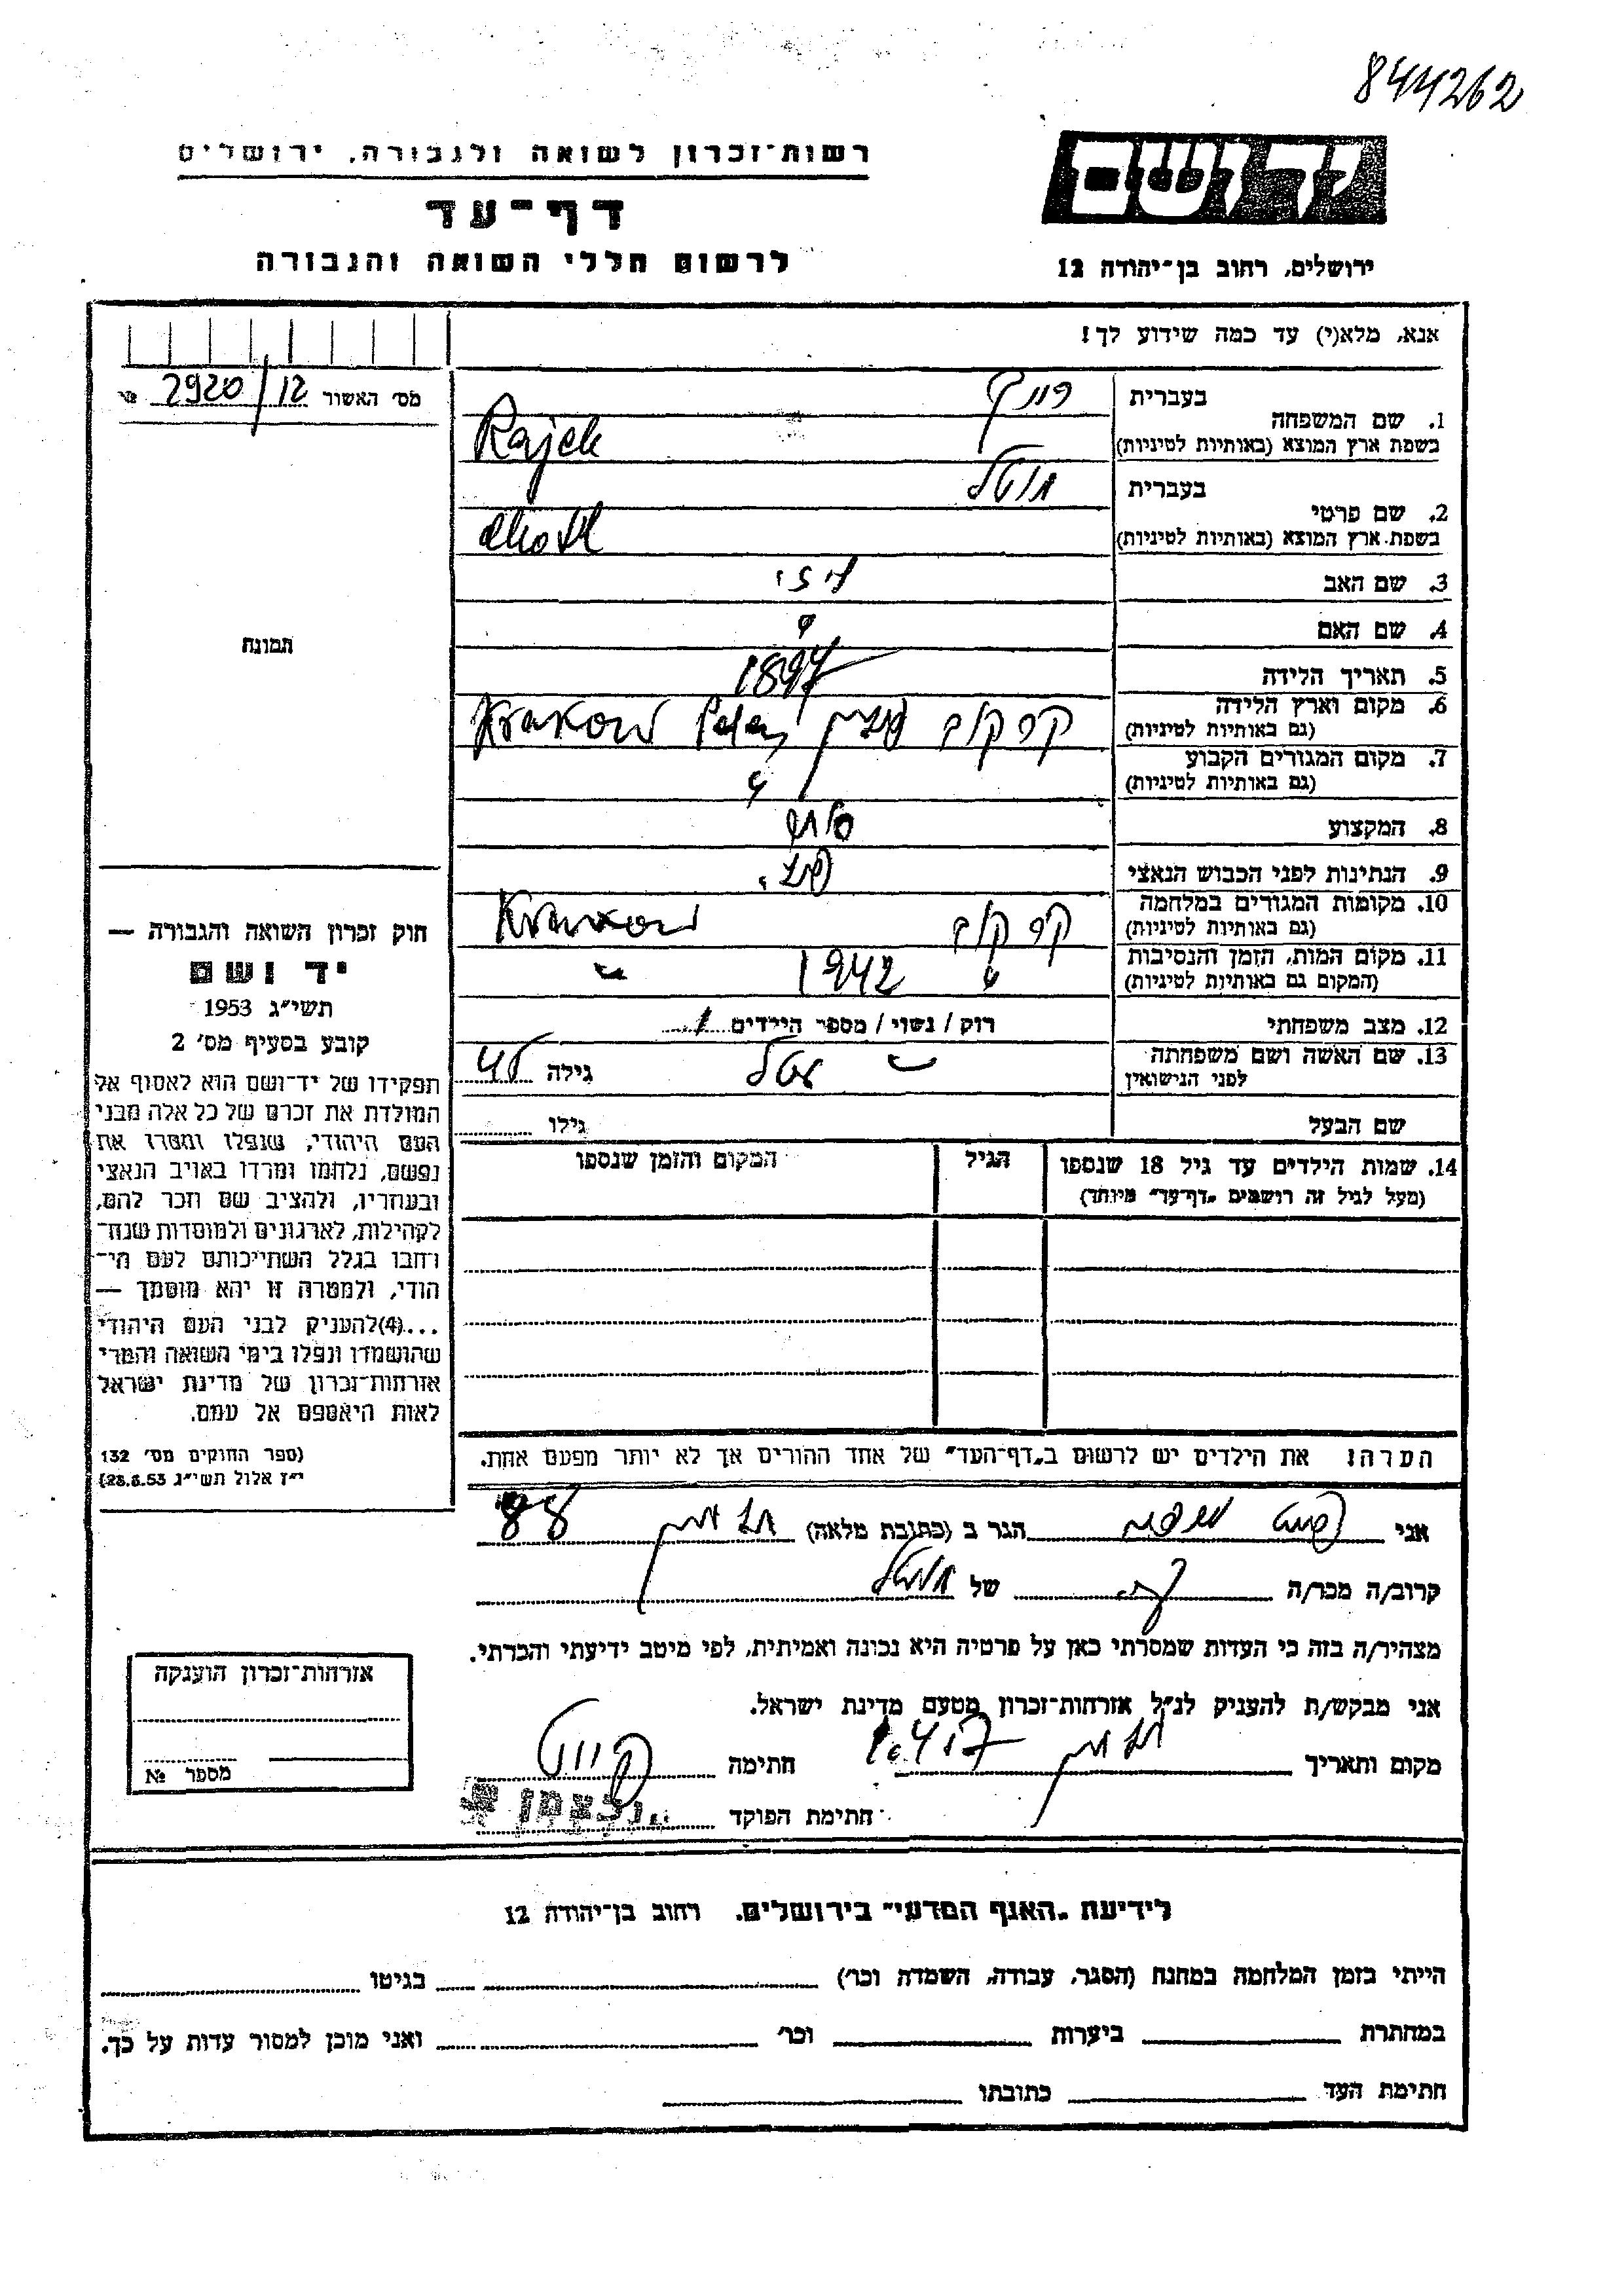 844262
רשות־זכרון לשואה ולגבורה, ירושלים
יד ושם
דף־עד
לרשום חללי השואה והגבורה
ירושלים, רחוב בן־יהודה 12
אנא, מלא(י) עד כמה שידוע לך!
מס׳ האשור 2920/12
בעברית
1. שם המשפחה
בשפת ארץ המוצא (באותיות לטיניות) Rajch
בעברית מוטל
2. שם פרטי
בשפת ארץ המוצא (באותיות לטיניות)
3. שם האב
4. שם האם
תמונה
5. תאריך הלידה 1897
6. מקום וארץ הלידה קרקוב פולין Krakow
(גם באותיות לטיניות)
7. מקום המגורים הקבוע
(גם באותיות לטיניות)
8. המקצוע סוחר
9. הנתינות לפני הכבוש הנאצי פול.
10. מקומות המגורים במלחמה קרקוב Krakow
(גם באותיות לטיניות)
11. מקום המות, הזמן והנסיבות 1942
(המקום גם באותיות לטיניות)
12. מצב משפחתי רוק / נשוי / מספר הילדים 1
13. שם האשה ושם משפחתה גילה
לפני הנישואין
שם הבעל גילו
14. שמות הילדים עד גיל 18 שנספו הגיל המקום והזמן שנספו
(מעל לגיל זה רושמים „דף־עד״ מיוחד)
הערה: את הילדים יש לרשום ב„דף־העד״ של אחד ההורים אך לא יותר מפעם אחת.
חוק זכרון השואה והגבורה —
יד ושם
תשי״ג 1953
קובע בסעיף מס׳ 2
תפקידו של יד־ושם הוא לאסוף אל
המולדת את זכרם של כל אלה מבני
העם היהודי, שנפלו ומסרו את
נפשם, נלחמו ומרדו באויב הנאצי
ובעוזריו, ולהציב שם וזכר להם,
לקהילות, לארגונים ולמוסדות שנח־
רבו בגלל השתייכותם לעם הי־
הודי, ולמטרה זו יהא מוסמך —
...(4)להעניק לבני העם היהודי
שהושמדו ונפלו בימי השואה והמרי
אזרחות־זכרון של מדינת ישראל
לאות היאספם אל עמם.
(ספר החוקים מס׳ 132
י״ז אלול תשי״ג 28.8.53)
אני הגר ב (כתובת מלאה) 88
קרוב/ה מכר/ה של מוטל
מצהיר/ה בזה כי העדות שמסרתי כאן על פרטיה היא נכונה ואמיתית, לפי מיטב ידיעתי והכרתי.
אני מבקש/ת להעניק לנ״ל אזרחות־זכרון מטעם מדינת ישראל.
מקום ותאריך חתימה
חתימת הפוקד
אזרחות־זכרון הוענקה
מספר №
לידיעת „האגף המדעי״ בירושלים. רחוב בן־יהודה 12
הייתי בזמן המלחמה במחנה (הסגר, עבודה, השמדה וכו׳) בגיטו
במחתרת ביערות וכו׳ ואני מוכן למסור עדות על כך.
חתימת העד כתובתו